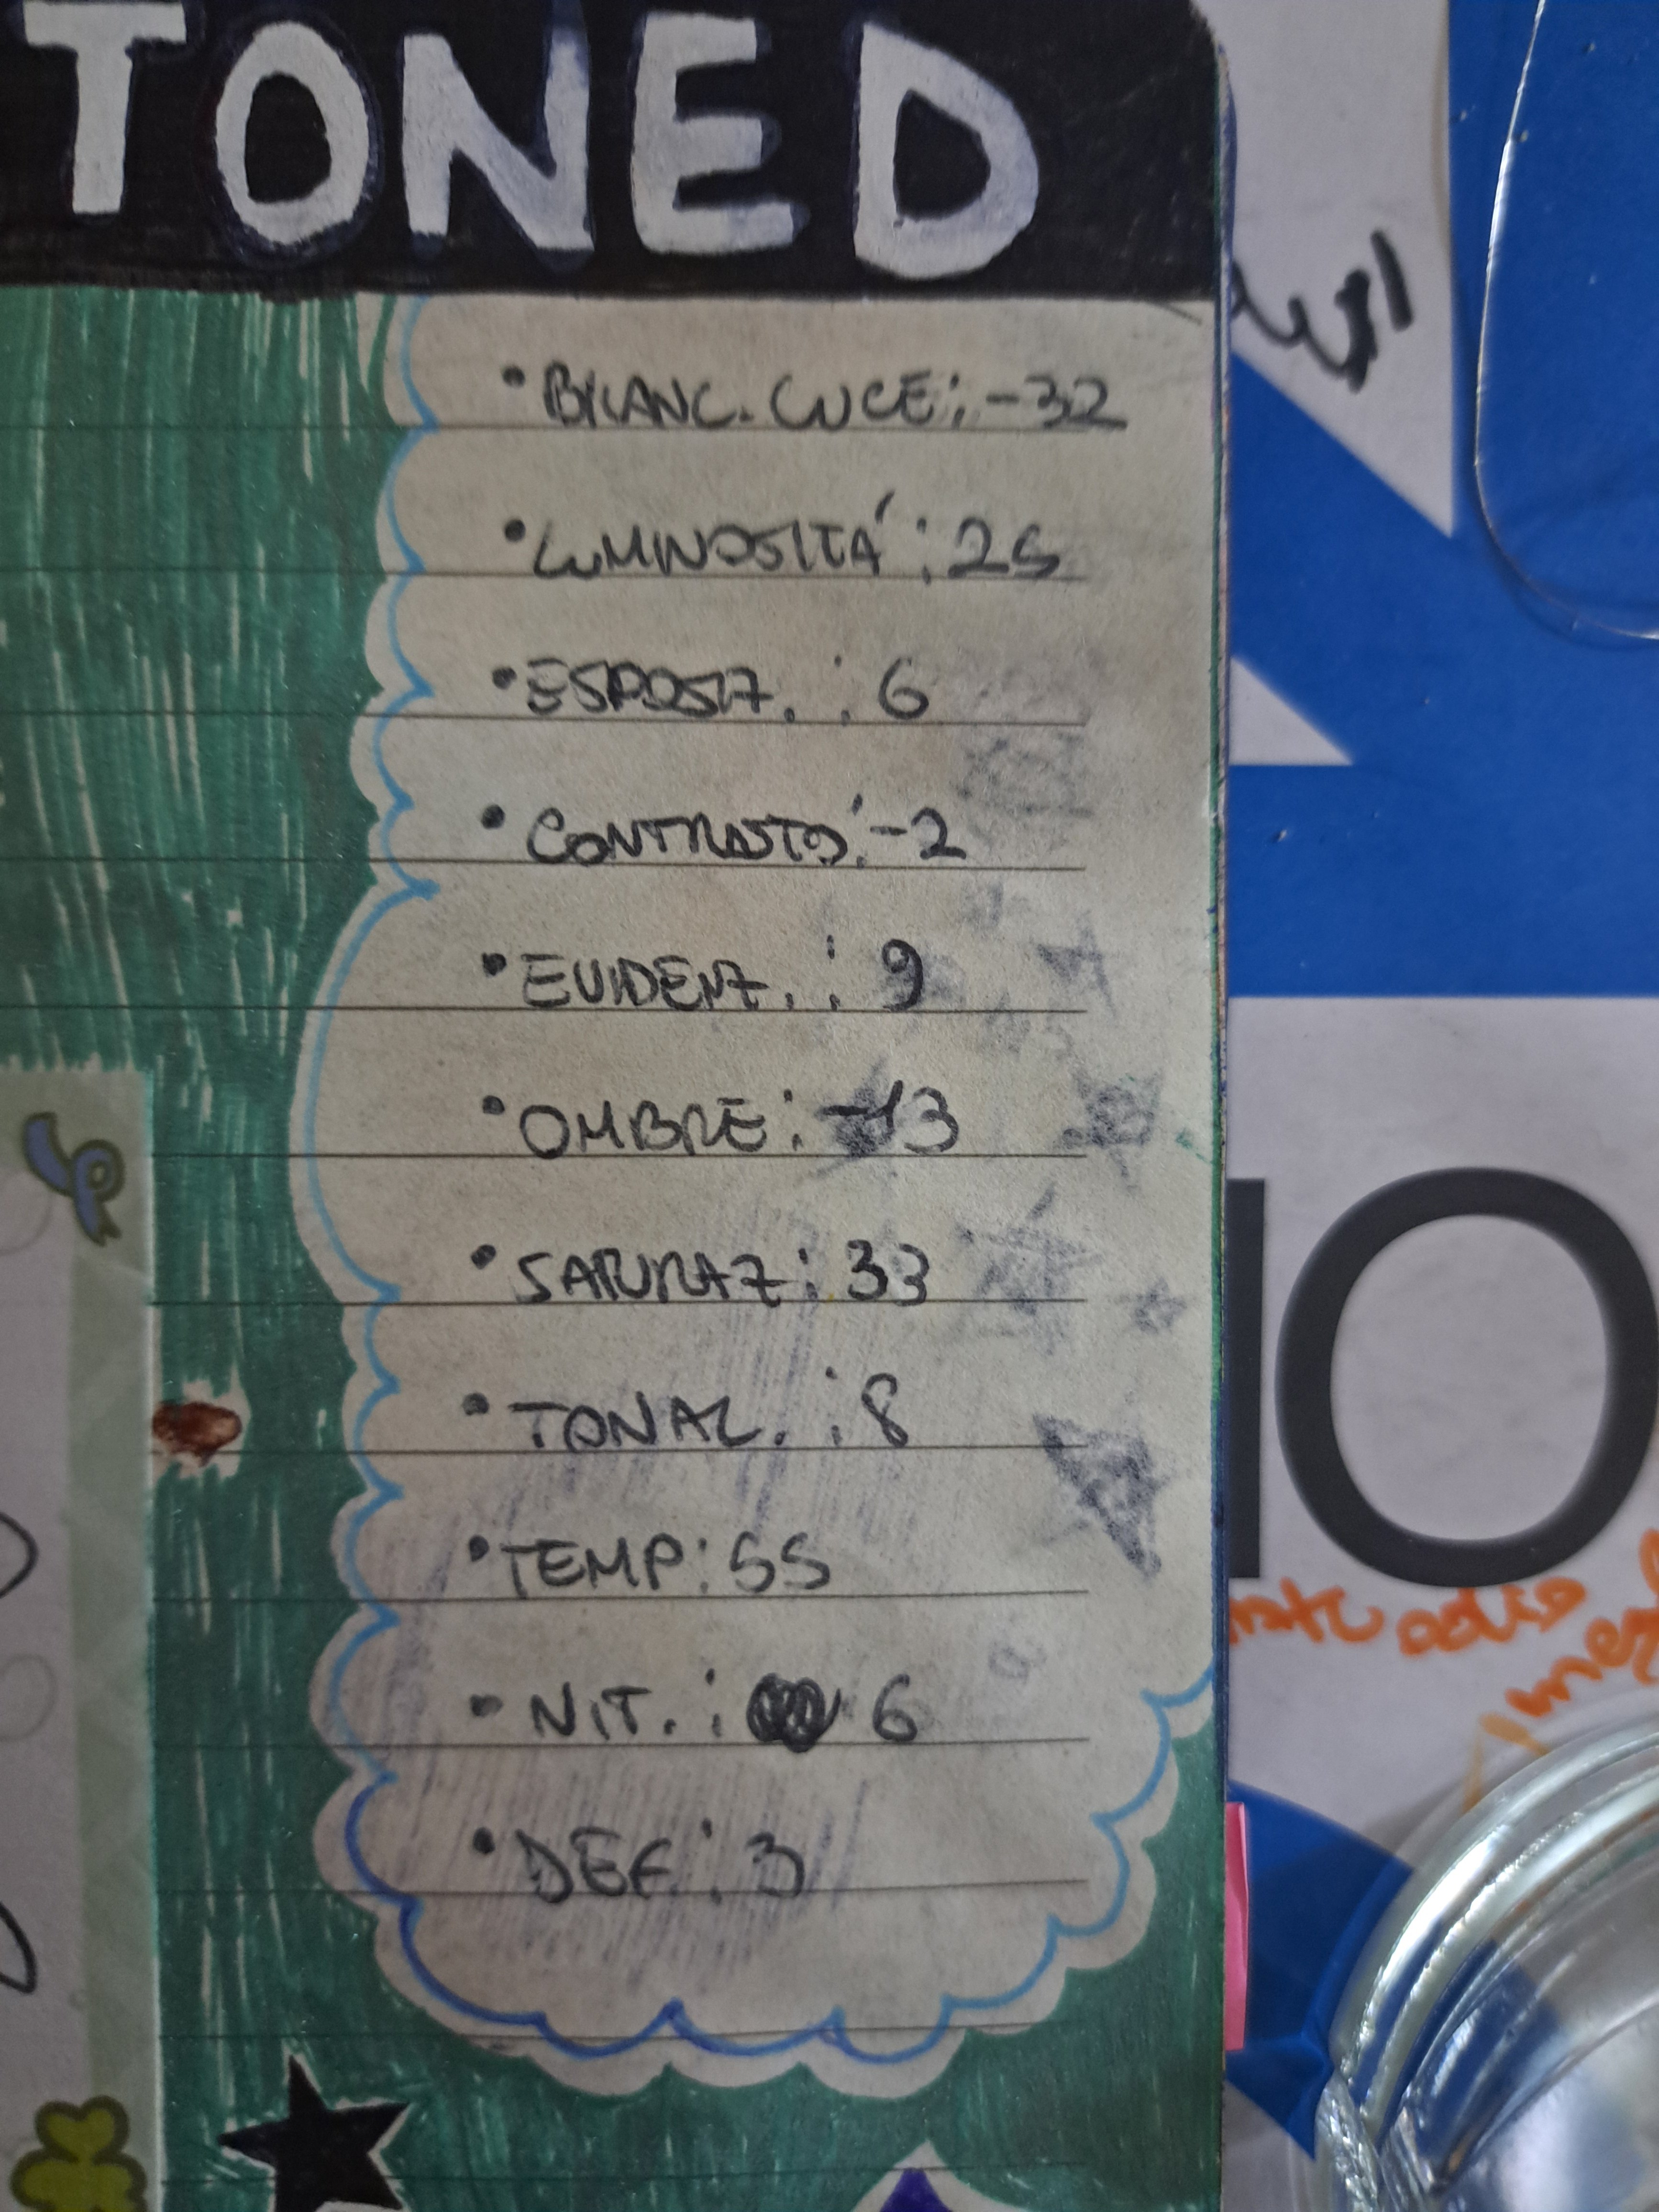 TONED
• BILANC. LUCE: -32
• LUMINOSITÁ: 25
• ESPOSIZ. : 6
• CONTRASTO: -2
• EVIDENZ. : 9
• OMBRE: -13
• SATURAZ: 33
• TONAL. : 8
• TEMP: 55
• NIT. : 6
• DEF: 3
IO